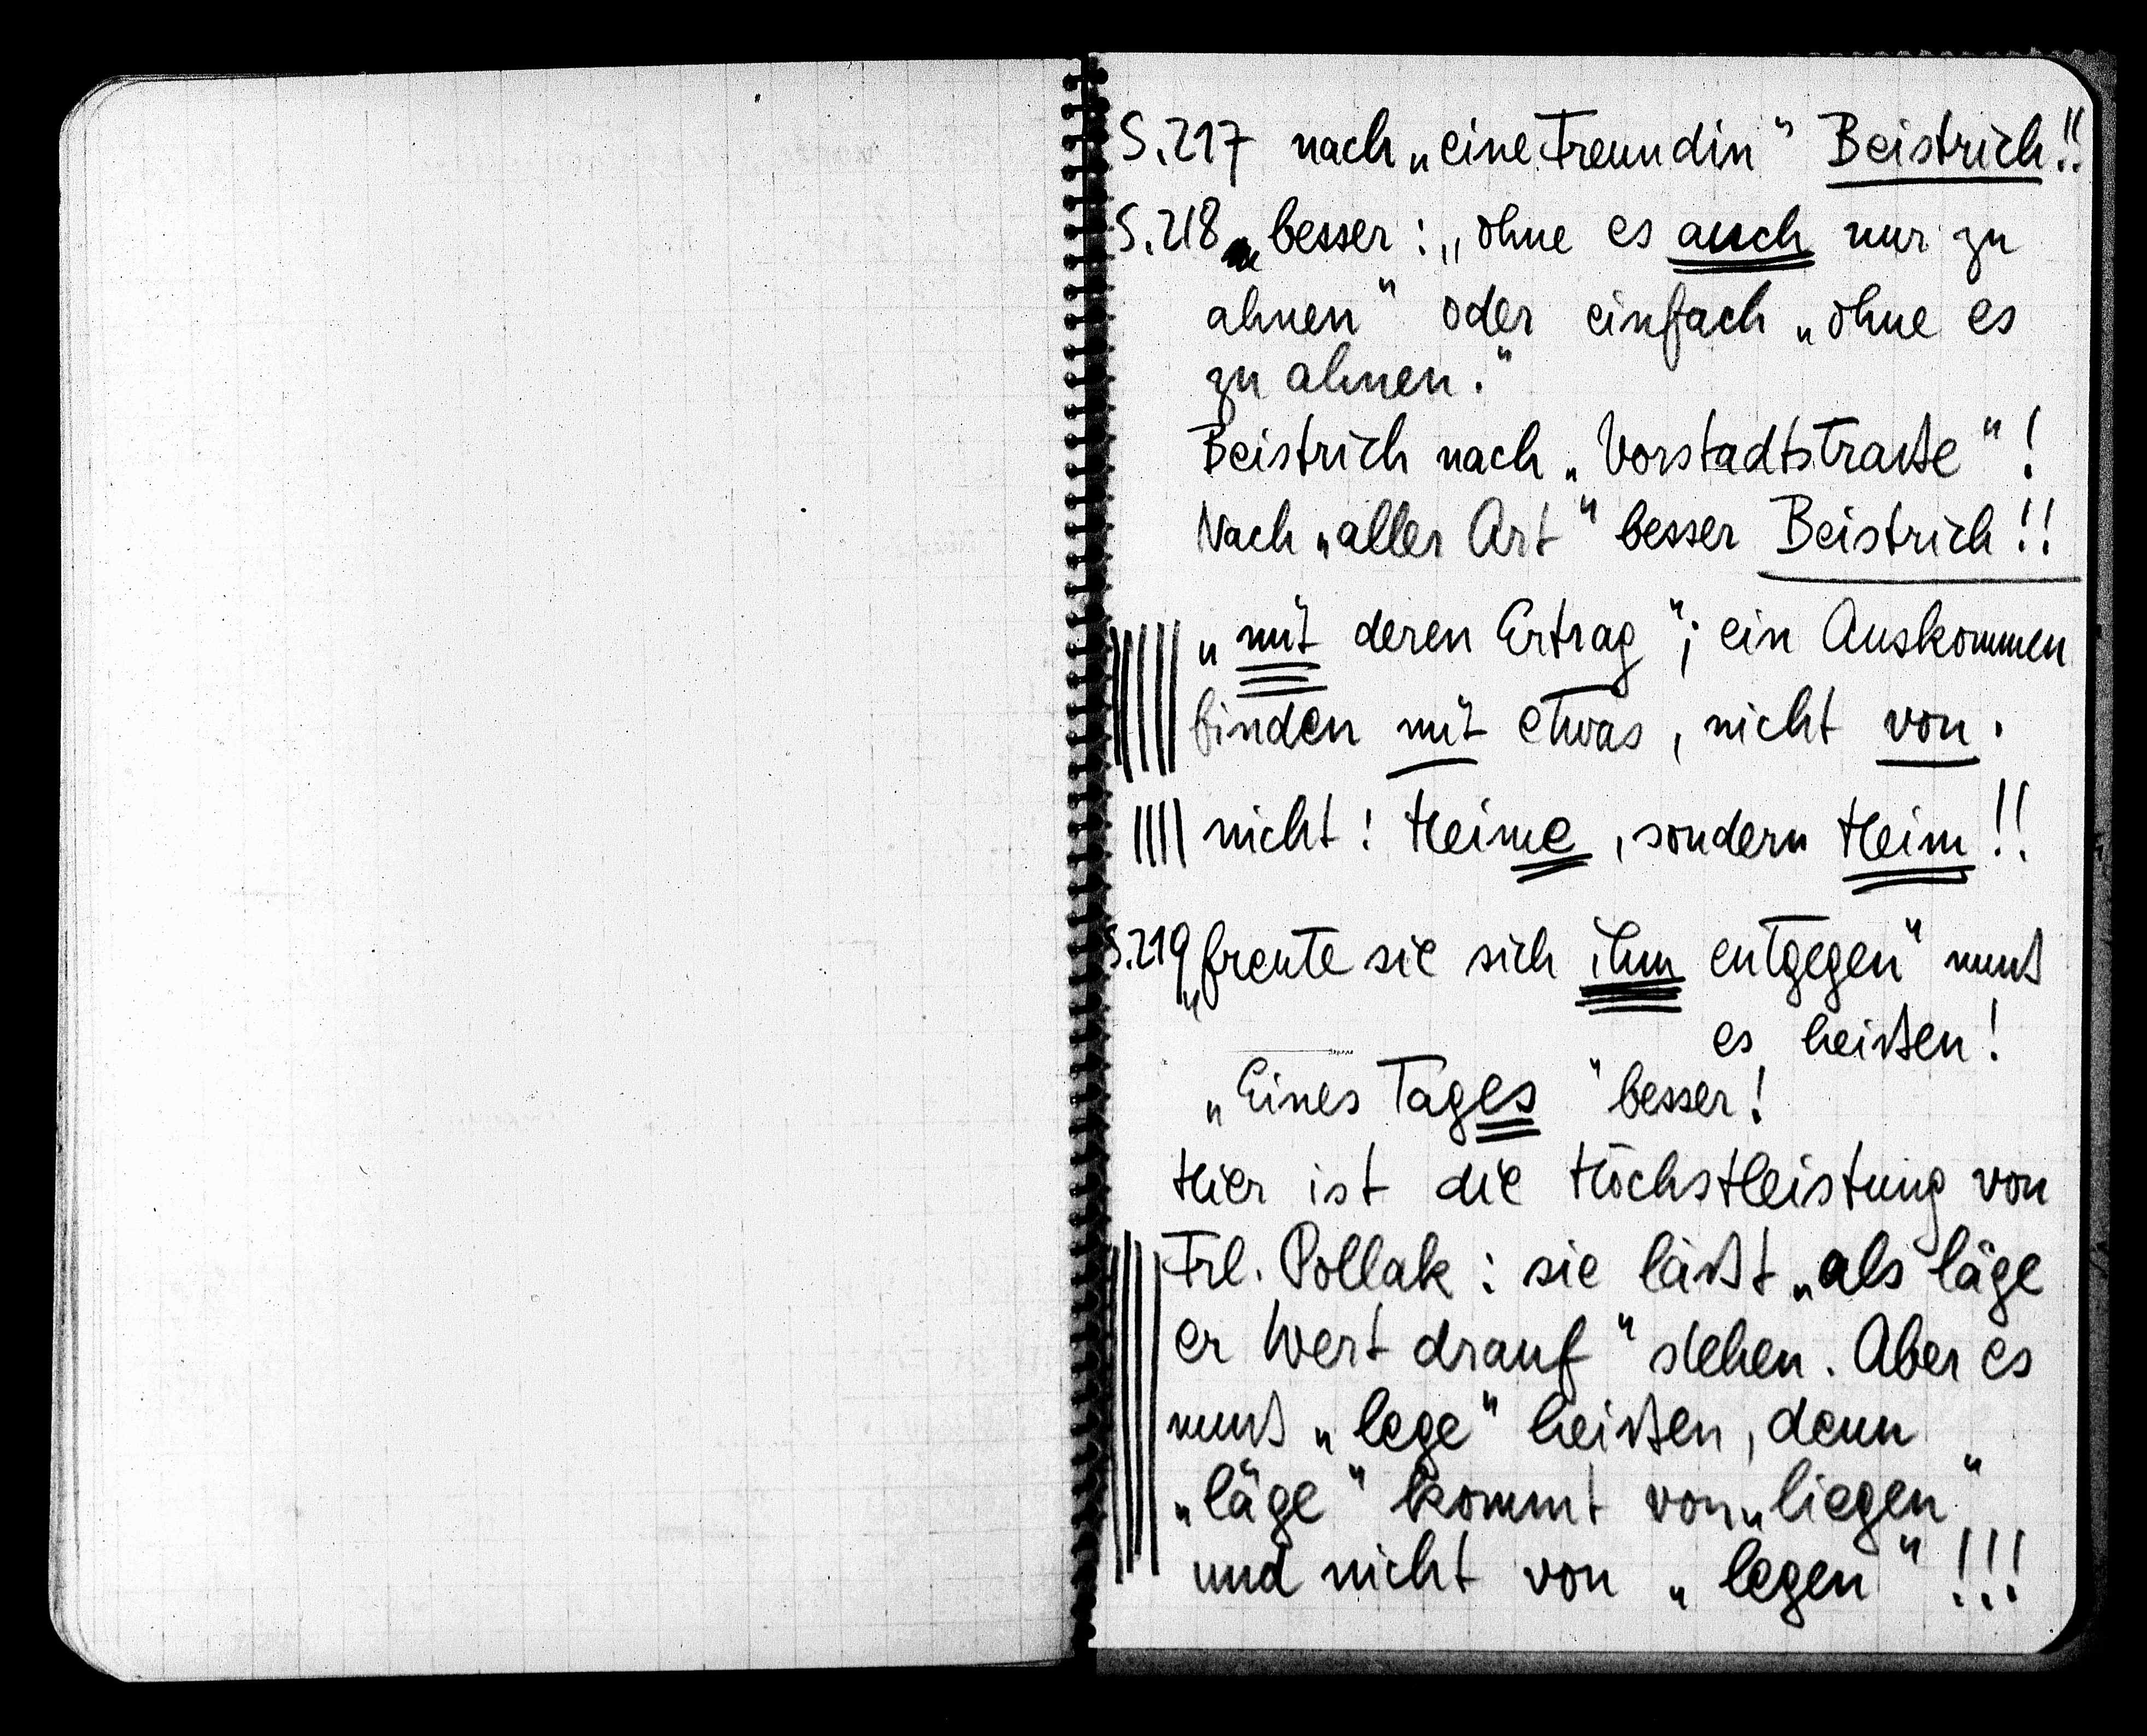 S.217 nach „eine Freundin" Beistrich!!
S.218 besser: „ohne es auch nur zu
ahnen" oder einfach „ohne es
zu ahnen."
Beistrich nach „Vorstadtstraße"!
Nach „aller Art" besser Beistrich!!
„mit deren Ertrag"; ein Auskommen
finden mit etwas, nicht von.
nicht! Heime, sondern Heim!!
S.219 „freute sie sich ihm entgegen" muß
es heißen!
„Eines Tages" besser!
Hier ist die Höchstleistung von
Frl. Pollak: sie läßt „als läge
er Wert drauf" stehen. Aber es
muß „lege" heißen, denn
„läge" kommt von „liegen"
und nicht von „legen"!!!